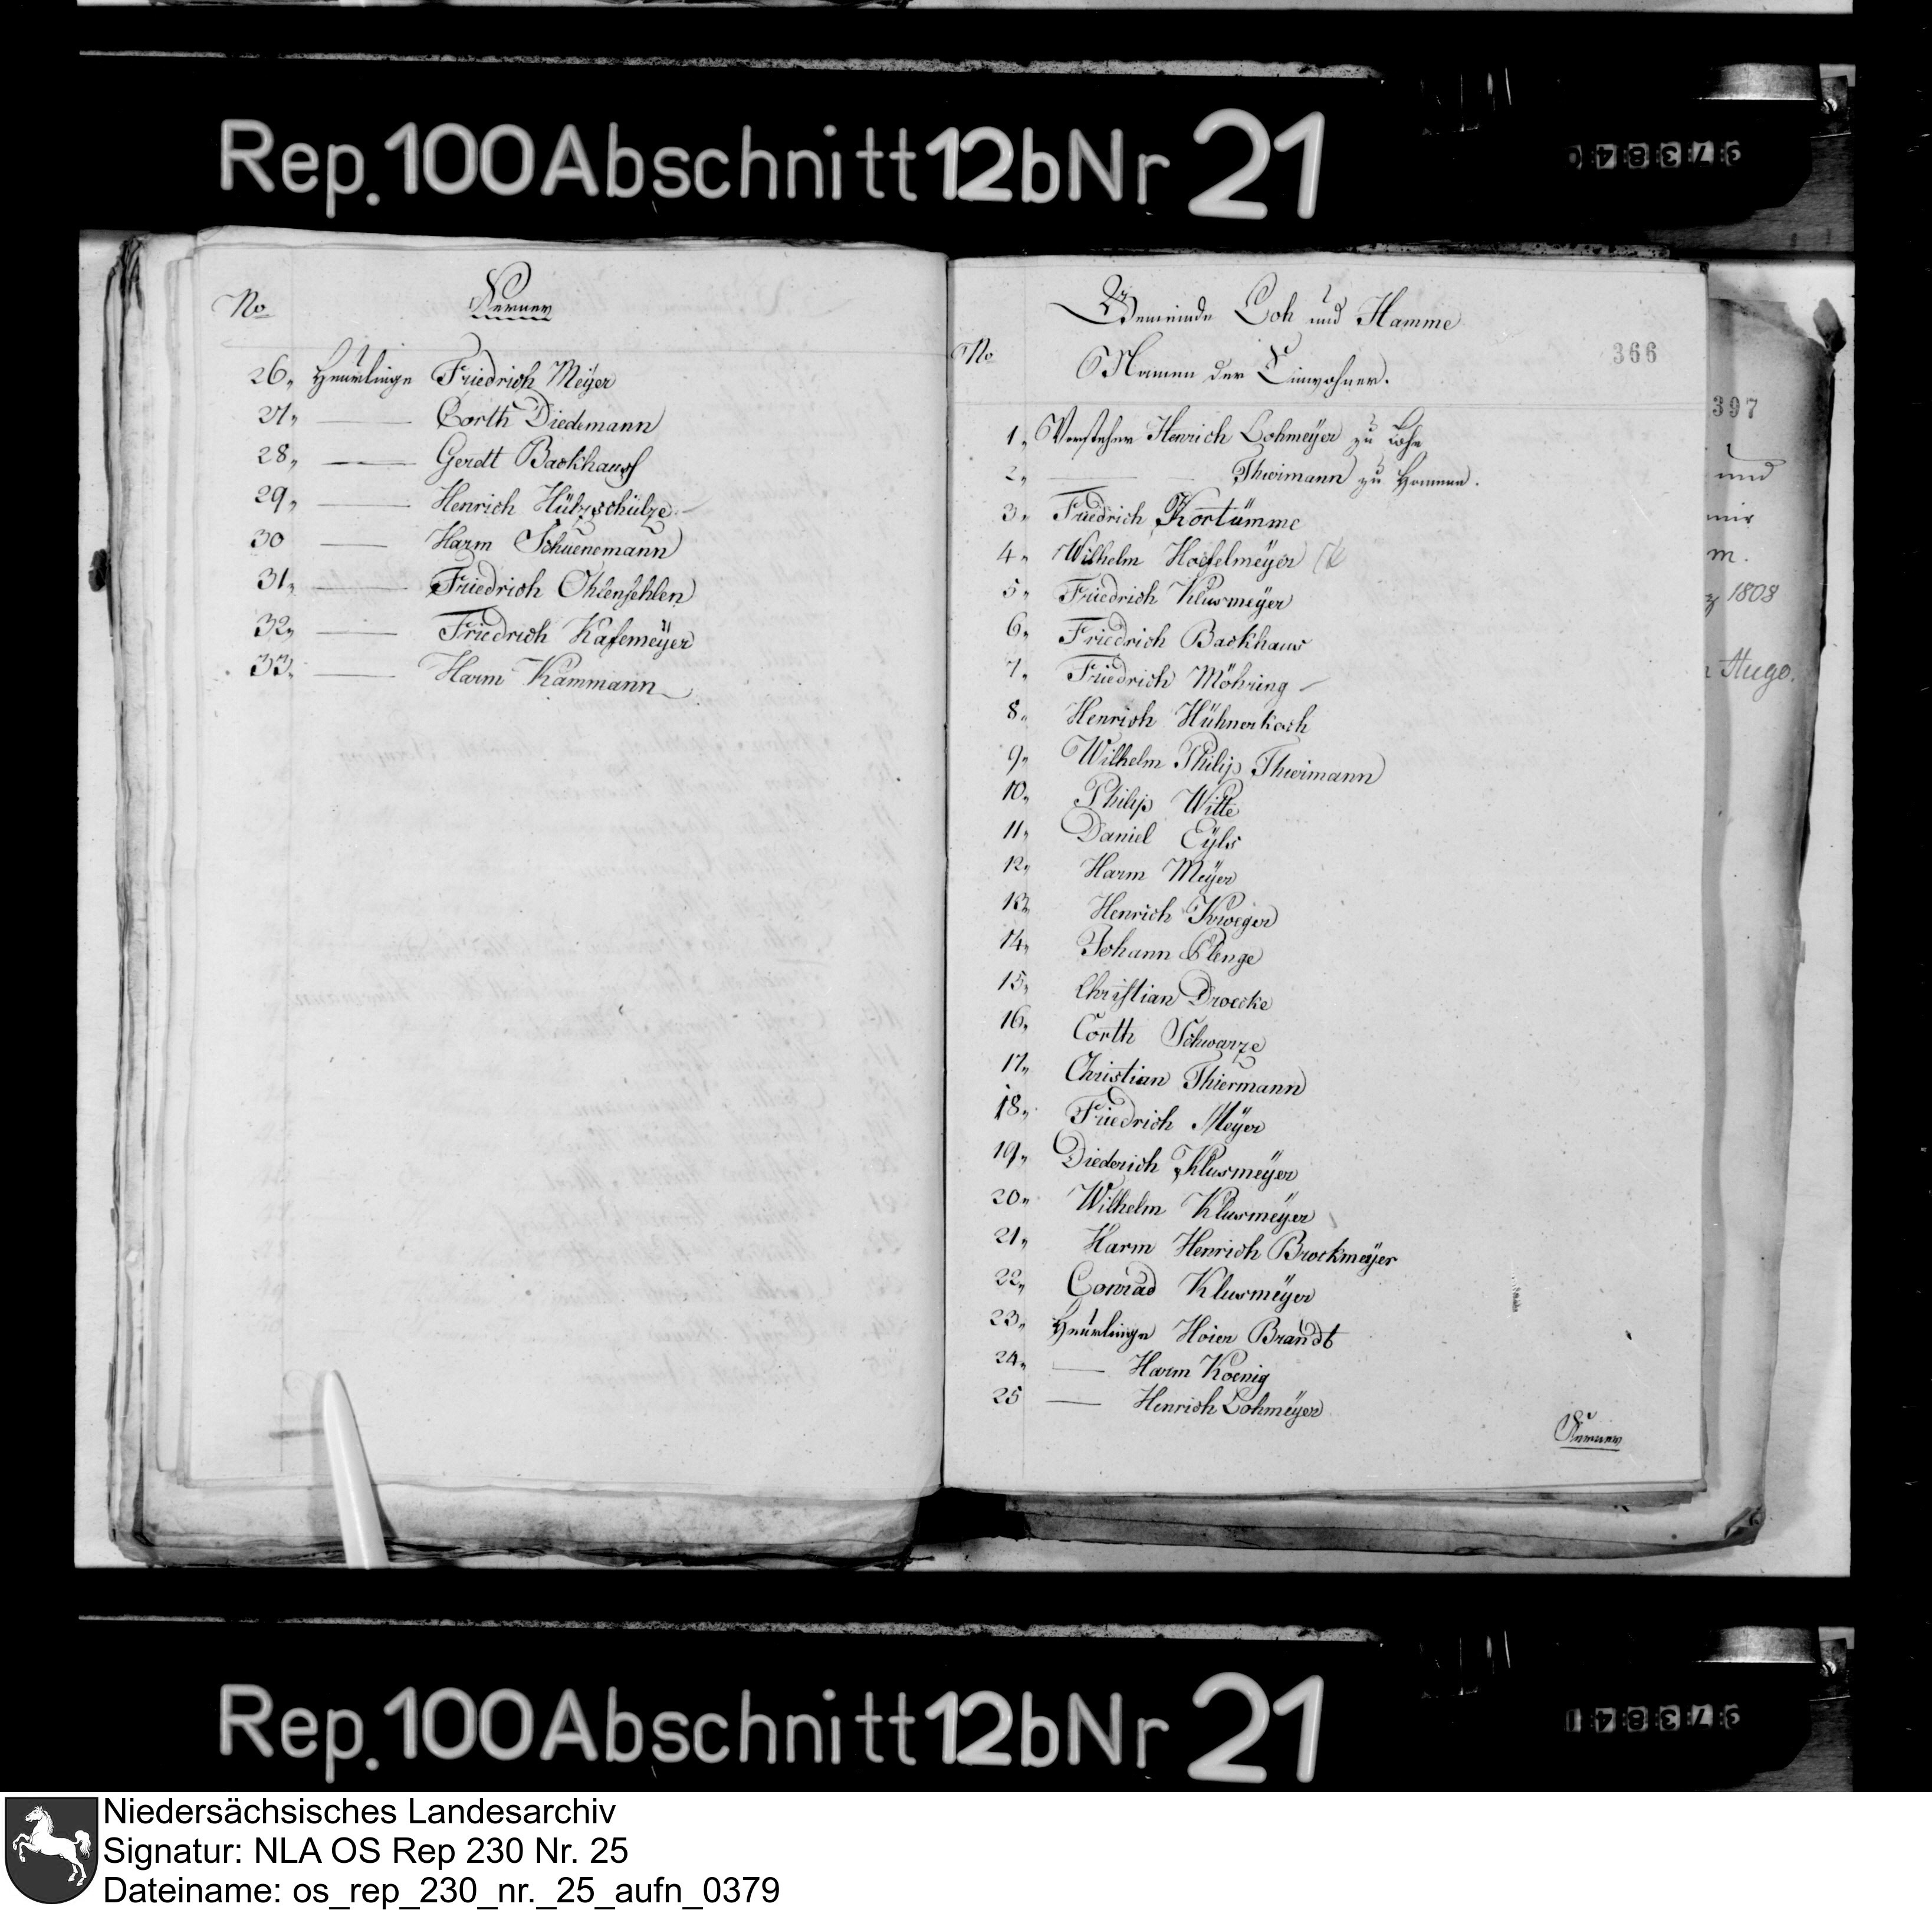 Rep. 100 Abschnitt 12b Nr 21
No Ferner
26. Heuerlinge Friedrich Meÿer
27. — Corth Diedemann
28. — Gerdt Backhauss
29. — Henrich Hützschütze
30 — Harm Schuenemann
31. — Friedrich Ohlensehlen
32. — Friedrich Kasemeÿer
33. — Harm Kammann
Gemeinde Loh und Hamme
366
No Namen der Einwohner.
1. Vorsteher Henrich Lohmeÿer zu Lohe
2. — Thwimann zu Hamme.
3. Friedrich Kortümme
4. Wilhelm Hoefelmeÿer
5. Friedrich Klusmeÿer
6. Friedrich Backhaus
7. Friedrich Möhring
8. Henrich Hühnerkoch
9. Wilhelm Philip Thwimann
10. Philip Witte
11. Daniel Eÿls
12. Harm Meÿer
13. Henrich Kroeger
14. Johann Plenge
15. Christian Droecke
16. Corth Schwarze
17. Christian Thiermann
18. Friedrich Meÿer
19. Diederich Klusmeÿer
20. Wilhelm Klusmeÿer
21. Harm Henrich Brockmeÿer
22. Conrad Klusmeÿer
23. Heuerlinge Hoier Brandt
24. — Harm Koenig
25 — Henrich Lohmeÿer
Ferner
397
und
mir
m.
1808
Hugo.
Rep. 100 Abschnitt 12b Nr 21
Niedersächsisches Landesarchiv
Signatur: NLA OS Rep 230 Nr. 25
Dateiname: os_rep_230_nr._25_aufn_0379